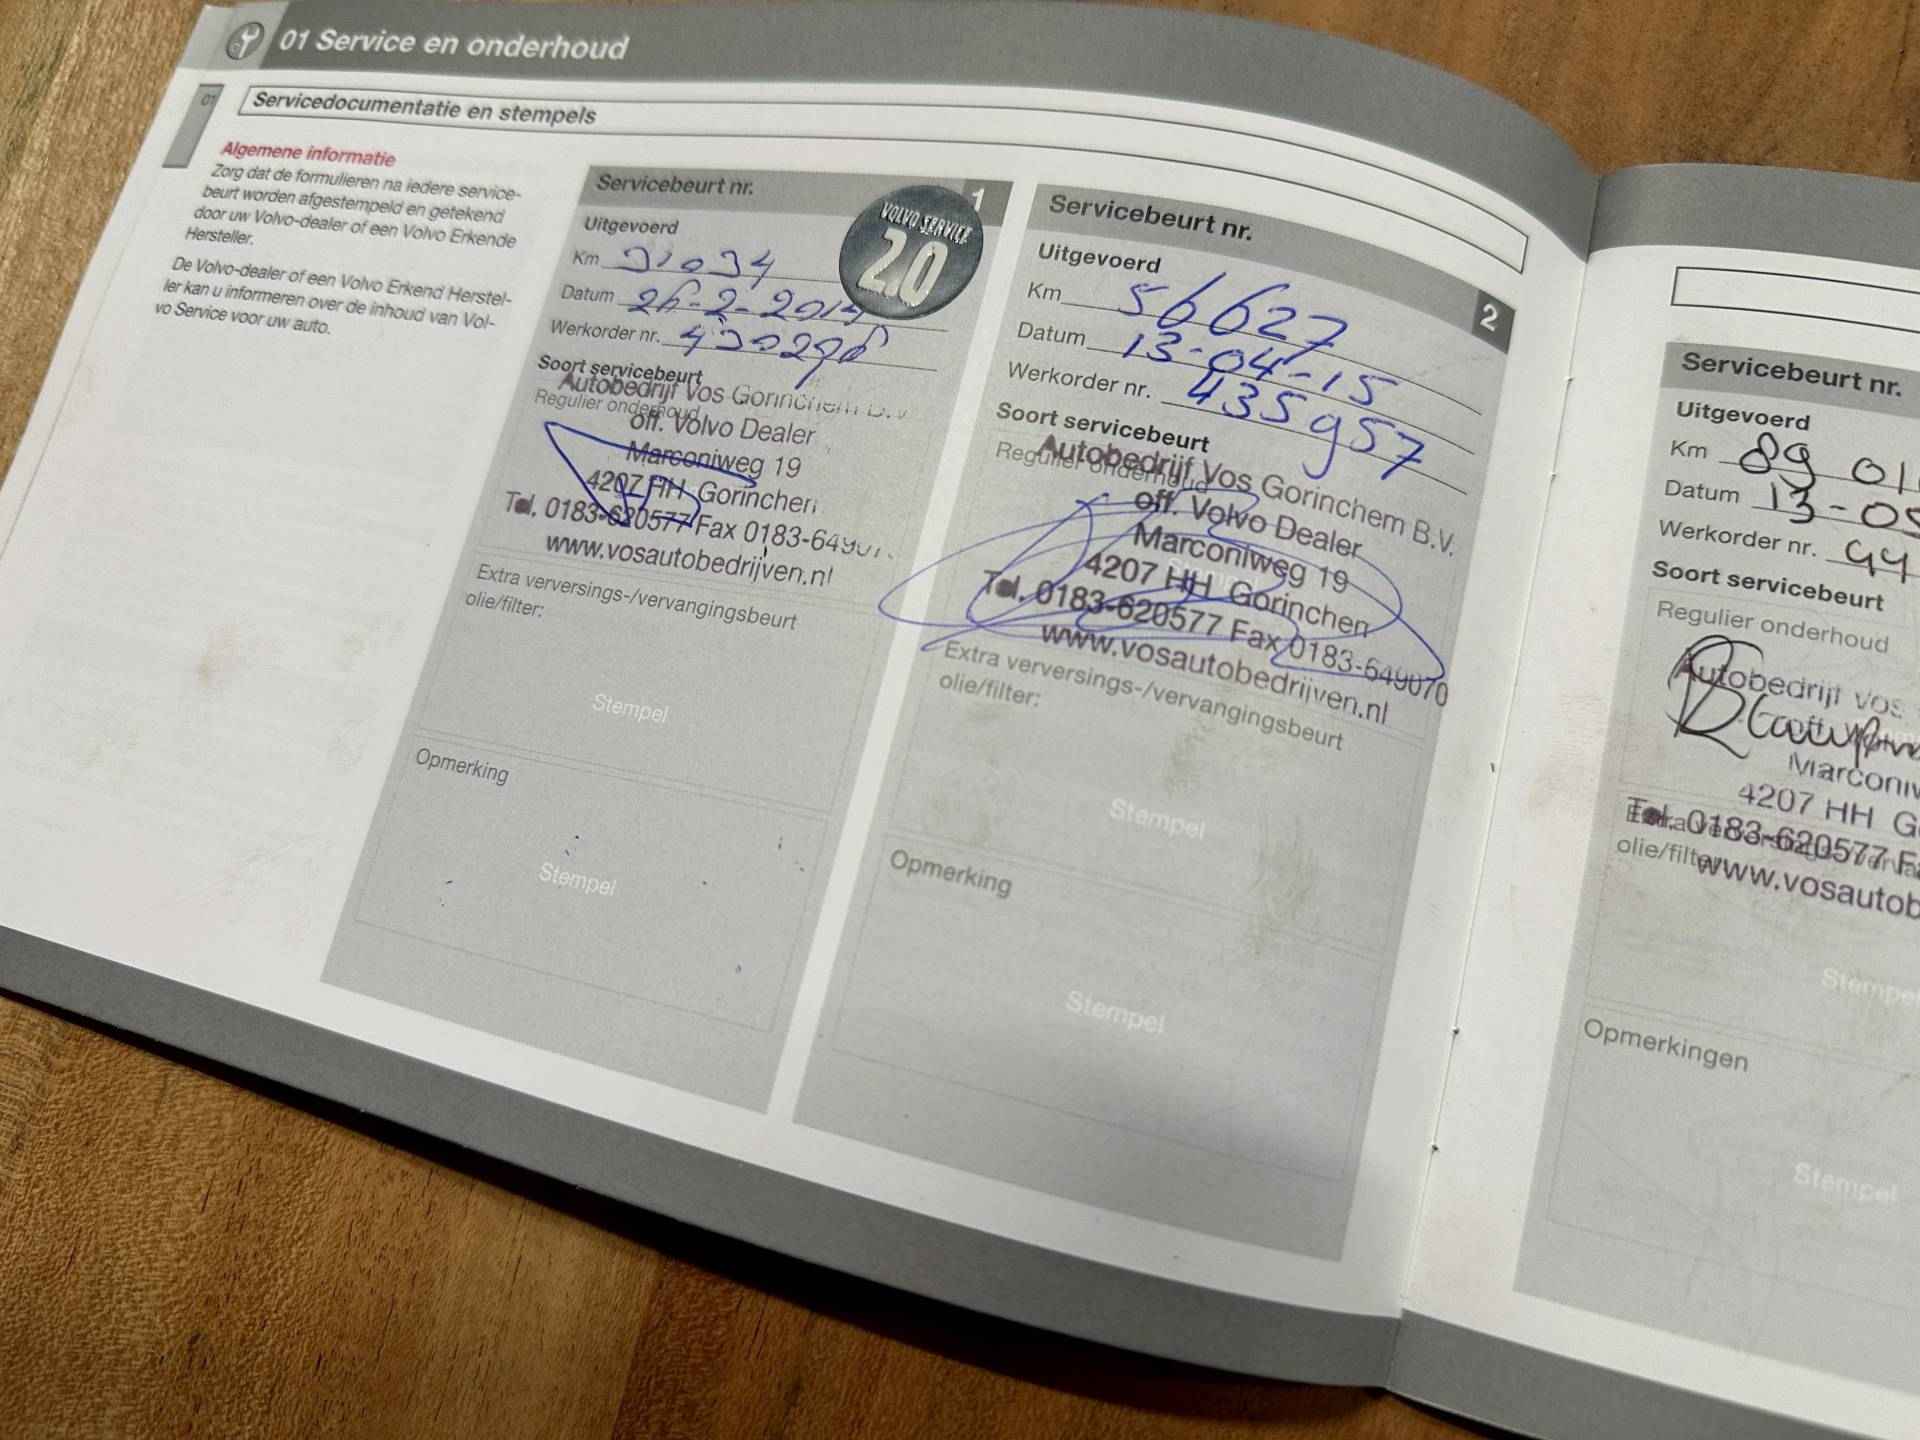 01 Service en onderhoud
01
Servicedocumentatie en stempels
Algemene informatie
Zorg dat de formulieren na iedere service-
beurt worden afgestempeld en getekend
door uw Volvo-dealer of een Volvo Erkende
Hersteller.
De Volvo-dealer of een Volvo Erkend Herstel-
ler kan u informeren over de inhoud van Vol-
vo Service voor uw auto.
Servicebeurt nr.
1
VOLVO SERVICE
2.0
Uitgevoerd
Km
Datum 26-2-2014
Werkorder nr.
Soort servicebeurt
Regulier onderhoud
Autobedrijf Vos Gorinchem B.V.
off. Volvo Dealer
Marconiweg 19
4207 HH Gorinchem
Tel. 0183-620577 Fax 0183-649070
www.vosautobedrijven.nl
Extra verversings-/vervangingsbeurt
olie/filter:
Stempel
Opmerking
Stempel
Servicebeurt nr.
2
Uitgevoerd
Km 56627
Datum 13-04-15
Werkorder nr. 435957
Soort servicebeurt
Regulier onderhoud
Autobedrijf Vos Gorinchem B.V.
off. Volvo Dealer
Marconiweg 19
4207 HH Gorinchem
Tel. 0183-620577 Fax 0183-649070
www.vosautobedrijven.nl
Extra verversings-/vervangingsbeurt
olie/filter:
Stempel
Opmerking
Stempel
Servicebeurt nr.
Uitgevoerd
Km 89 01
Datum 13-05
Werkorder nr. 44
Soort servicebeurt
Regulier onderhoud
Autobedrijf Vos
Marconiw
4207 HH G
Tel. 0183-620577 Fa
olie/filter:
www.vosautob
Stempel
Opmerkingen
Stempel